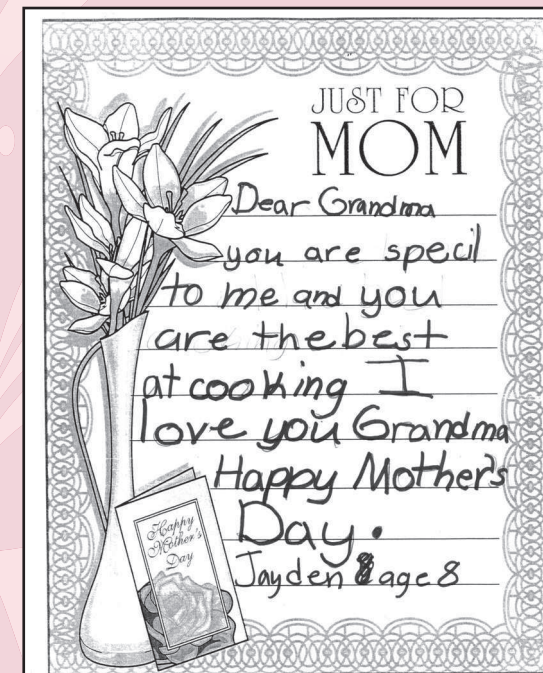 JUST FOR
MOM
Dear Grandma
you are specil
to me and you
are the best
at cooking I
love you Grandma
Happy Mother's
Day.
Jayden age 8
Happy
Mother's
Day